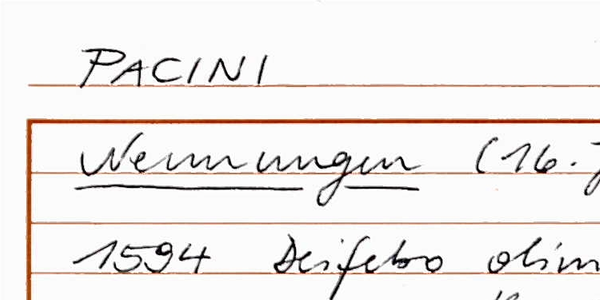 PACINI
Nennungen (16.
1594 Deifebo olim